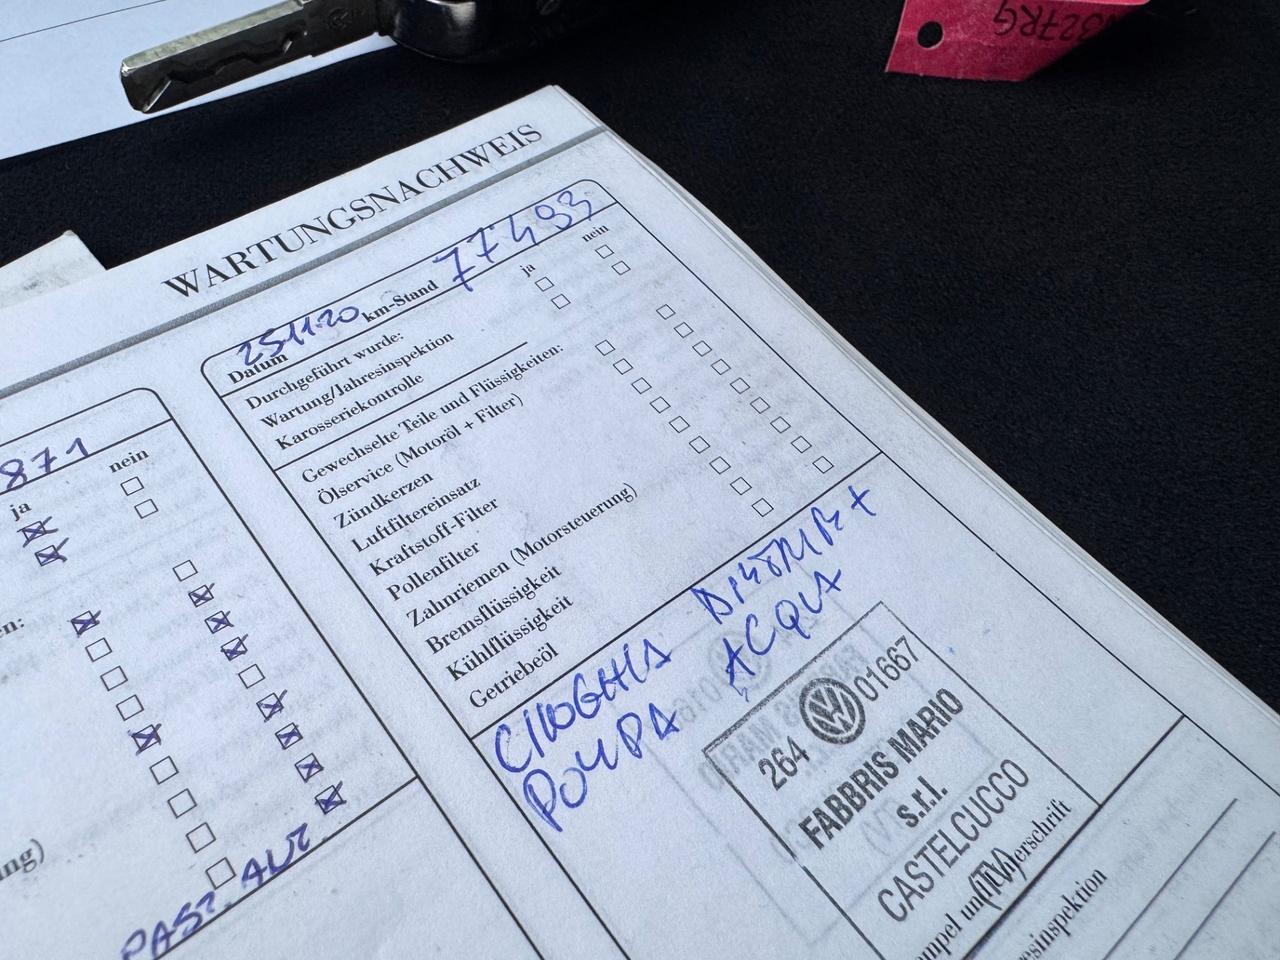 327RG
WARTUNGSNACHWEIS
871
ja nein
en:
ng)
PAST. ANT.
251120 77493
Datum km-Stand
Durchgeführt wurde: ja nein
Wartung/Jahresinspektion
Karosseriekontrolle
Gewechselte Teile und Flüssigkeiten:
Ölservice (Motoröl + Filter)
Zündkerzen
Luftfiltereinsatz
Kraftstoff-Filter
Pollenfilter
Zahnriemen (Motorsteuerung)
Bremsflüssigkeit
Kühlflüssigkeit
Getriebeöl
CINGHIA DISTRIB +
POMPA ACQUA
264 VW 01667
FABBRIS MARIO
s.r.l.
CASTELCUCCO
(TV)
empel und Unterschrift
resinspektion